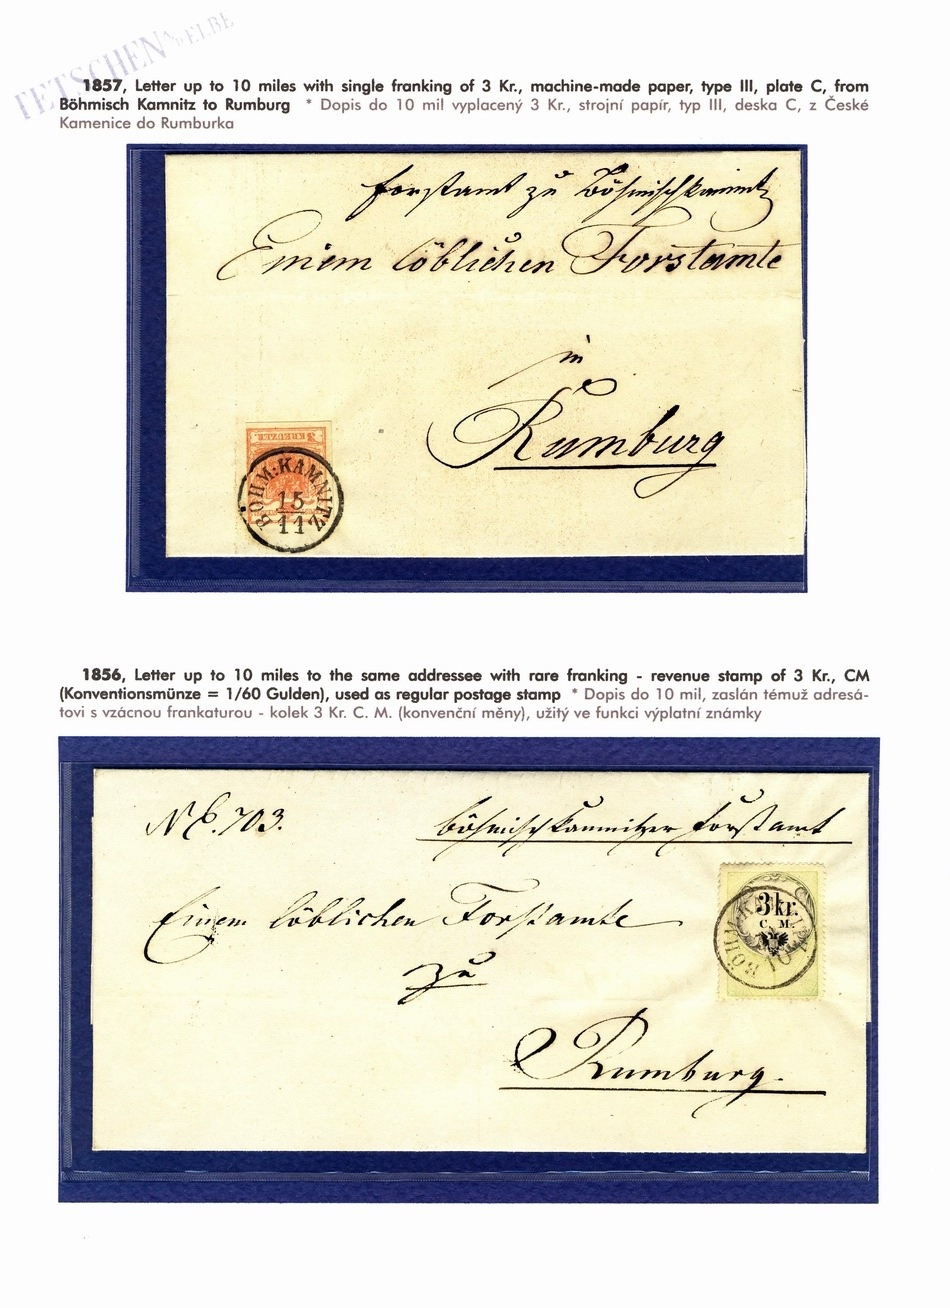 TETSCHEN A/D ELBE
1857, Letter up to 10 miles with single franking of 3 Kr., machine-made paper, type III, plate C, from
Böhmisch Kamnitz to Rumburg * Dopis do 10 mil vyplacený 3 Kr., strojní papír, typ III, deska C, z České
Kamenice do Rumburka
Forstamt zu Böhmischkamnitz
Einem löblichen Forstamte
in
Rumburg
3 KREUZER
BÖHM:KAMNITZ
15
11
1856, Letter up to 10 miles to the same addressee with rare franking - revenue stamp of 3 Kr., CM
(Konventionsmünze = 1/60 Gulden), used as regular postage stamp * Dopis do 10 mil, zaslán témuž adresá-
tovi s vzácnou frankaturou - kolek 3 Kr. C. M. (konvenční měny), užitý ve funkci výplatní známky
N E. 703.
Böhmischkamnitzer Forstamt
3 kr.
C. M.
BÖHM:KA
10
Einem löblichen Forstamte
zu
Rumburg.